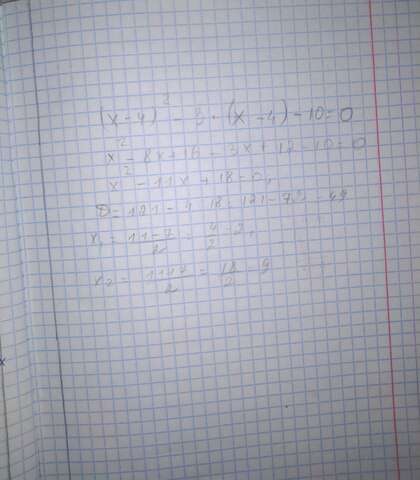 (x-4)² - 3 · (x-4) - 10 = 0
x² - 8x + 16 - 3x + 12 - 10 = 0
x² - 11x + 18 = 0;
D = 121 - 4 · 18 = 121 - 72 = 49
x₁ = (11-7)/2 = 4/2 = 2;
x₂ = (11+7)/2 = 18/2 = 9